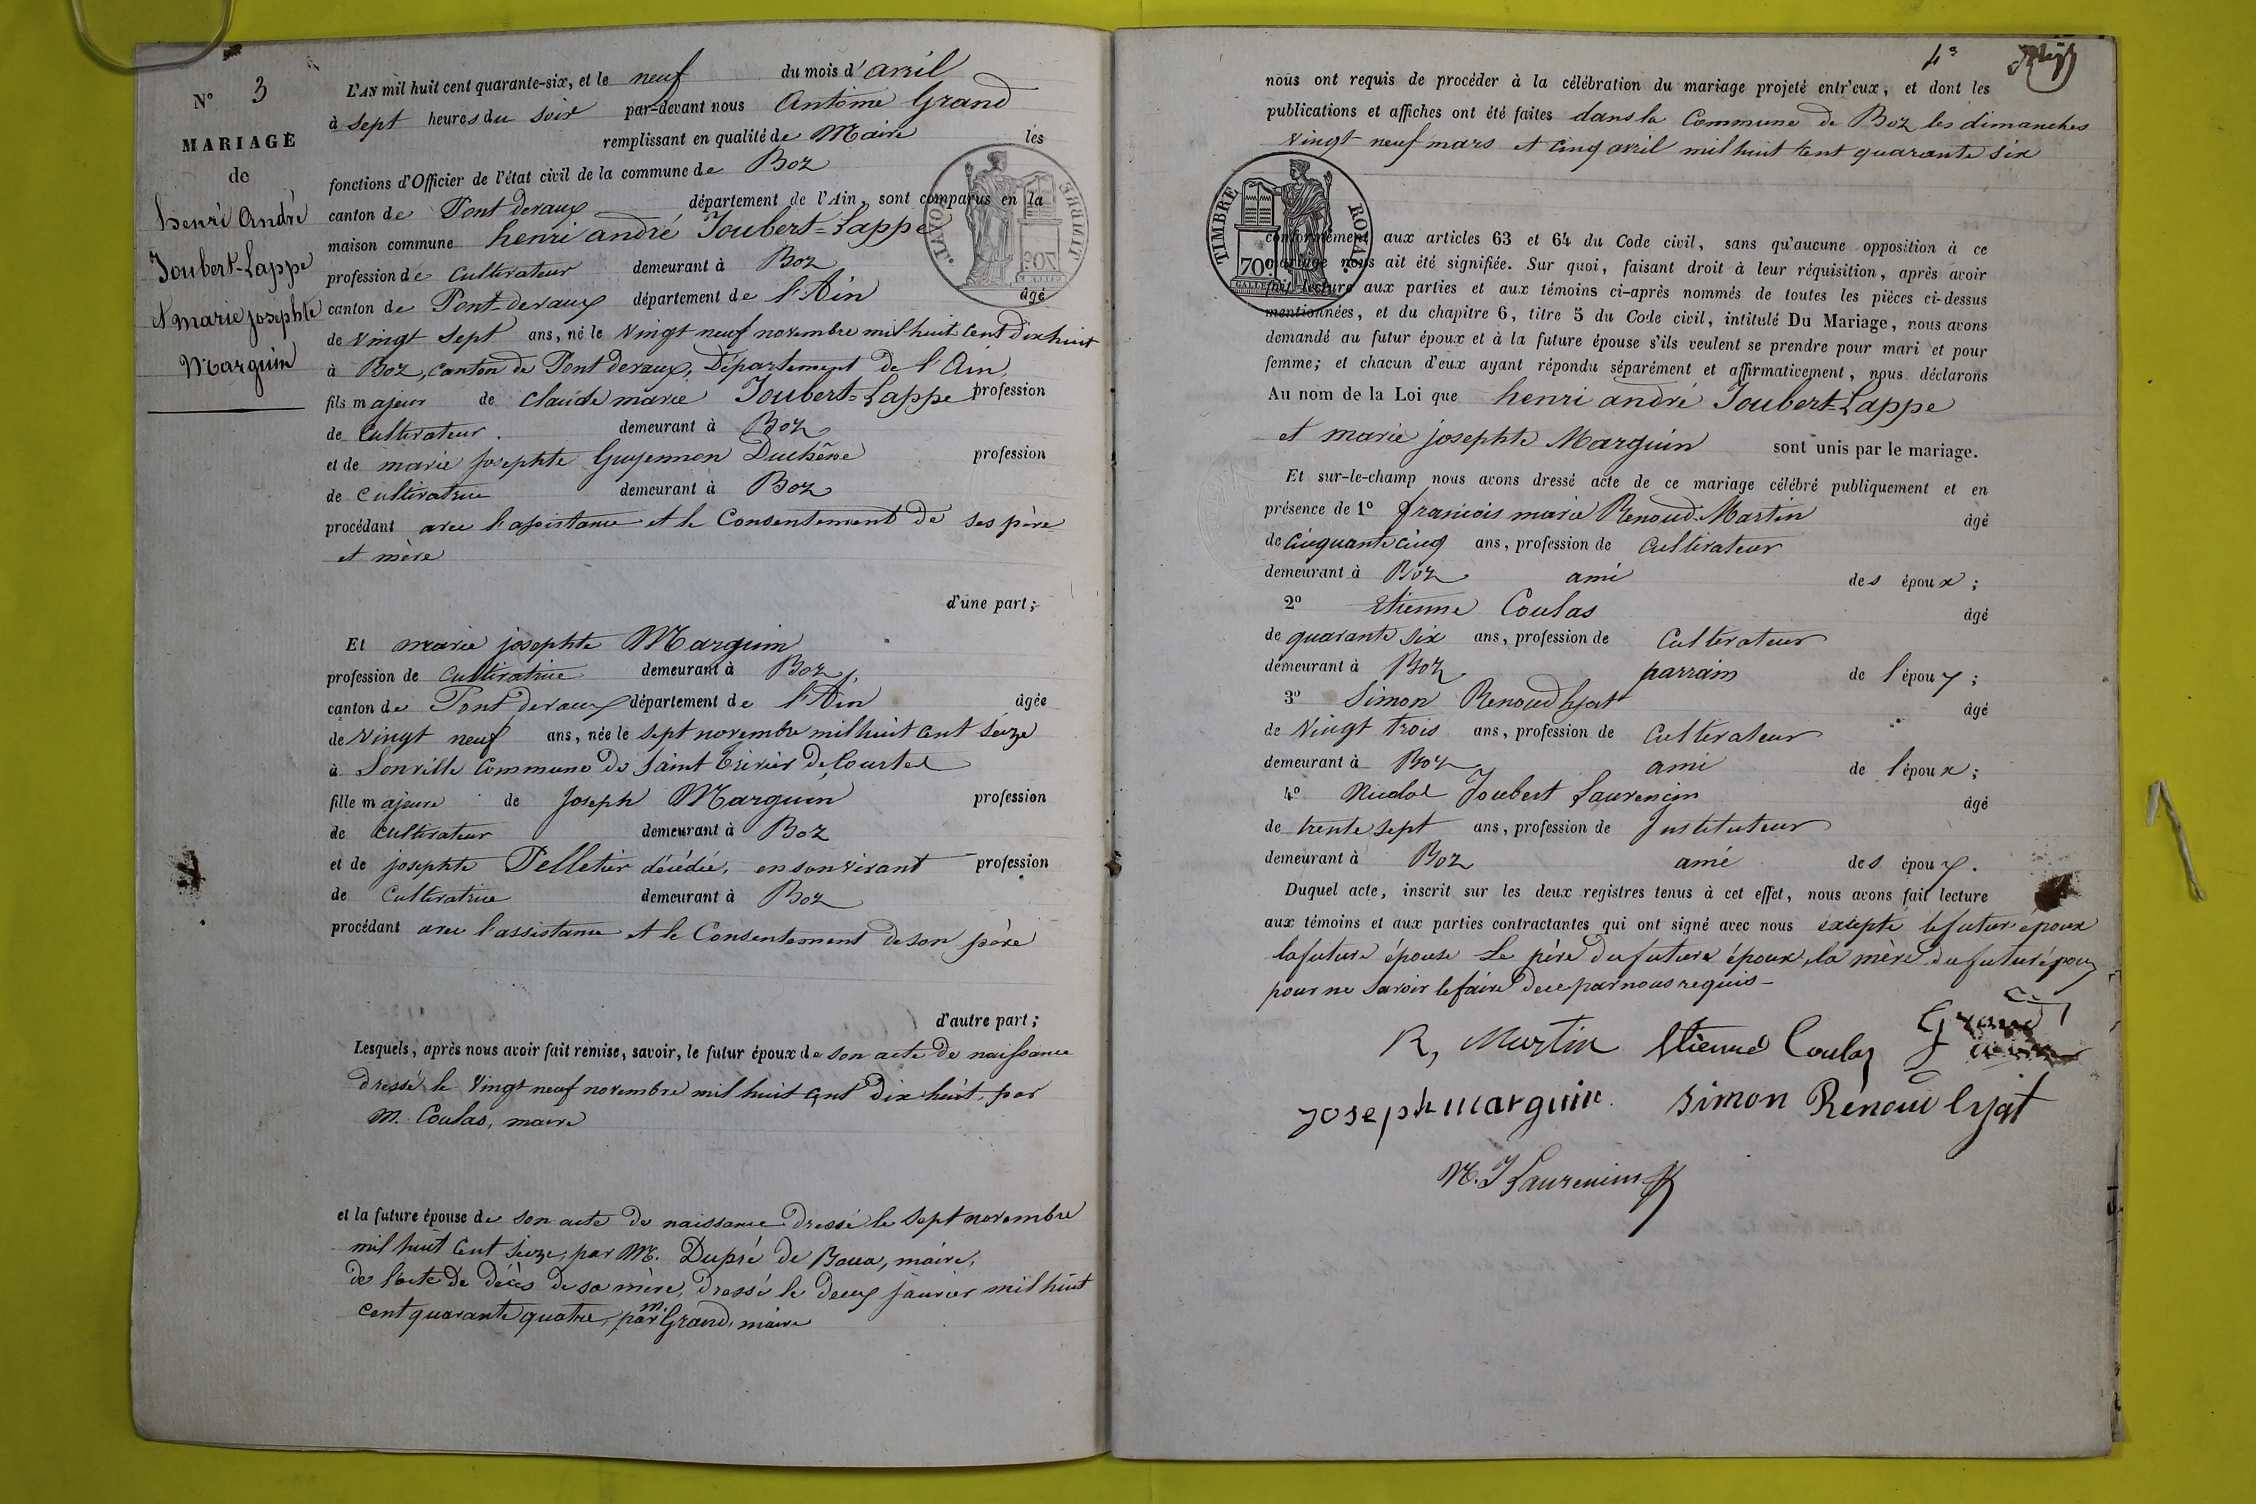 N° 3
MARIAGE
de
henri André
Joubert-Lappe
et marie josephte
Marguin
L'AN mil huit cent quarante-six, et le neuf du mois d'avril
à sept heures du soir par-devant nous Antoine Grand
remplissant en qualité de Maire les
fonctions d'Officier de l'état civil de la commune de Boz
canton de Pont devaux département de l'Ain, sont comparus en la
maison commune henri andré Joubert-Lappe
profession de cultivateur demeurant à Boz
canton de Pont-devaux département de l'Ain âgé
de vingt sept ans, né le vingt neuf novembre mil huit cent dix huit
à Boz, canton de Pont devaux, Département de l'Ain,
fils majeur de claude marie Joubert-Lappe profession
de Cultivateur. demeurant à Boz
et de marie josephte Guyennon Duchêne profession
de cultivatrice demeurant à Boz
procédant avec l'assistance et le Consentement de ses père
et mère
d'une part;
Et marie josephte Marguin
profession de cultivatrice demeurant à Boz,
canton de Pont devaux département de l'Ain âgée
de vingt neuf ans, née le sept novembre mil huit cent seize
à Sonville Commune de Saint Trivier de Courtes
fille majeure de Joseph Marguin profession
de cultivateur demeurant à Boz
et de josephte Pelletier décédée, en son vivant profession
de Cultivatrice demeurant à Boz
procédant avec l'assistance et le Consentement de son père
d'autre part;
Lesquels, après nous avoir fait remise, savoir, le futur époux de son acte de naissance
dressé le vingt neuf novembre mil huit cent dix huit, par
M. Coulas, maire
et la future épouse de son acte de naissance dressé le sept novembre
mil huit cent seize, par M. Dupré de maire,
de l'acte de décès de sa mère, dressé le deux janvier mil huit
cent quarante quatre, par m. Grand, maire
4e
nous ont requis de procéder à la célébration du mariage projeté entr'eux, et dont les
publications et affiches ont été faites dans la Commune de Boz les dimanches
vingt neuf mars et cinq avril mil huit cent quarante six
TIMBRE ROYAL
70c
conformément aux articles 63 et 64 du Code civil, sans qu'aucune opposition à ce
mariage nous ait été signifiée. Sur quoi, faisant droit à leur réquisition, après avoir
fait lecture aux parties et aux témoins ci-après nommés de toutes les pièces ci-dessus
mentionnées, et du chapitre 6, titre 5 du Code civil, intitulé Du Mariage, nous avons
demandé au futur époux et à la future épouse s'ils veulent se prendre pour mari et pour
femme; et chacun d'eux ayant répondu séparément et affirmativement, nous déclarons
Au nom de la Loi que henri andré Joubert-Lappe
et marie josephte Marguin sont unis par le mariage.
Et sur-le-champ nous avons dressé acte de ce mariage célébré publiquement et en
présence de 1° françois marie Renoud-Martin âgé
de cinquante cinq ans, profession de cultivateur
demeurant à Boz ami des époux;
2° Etienne Coulas âgé
de quarante six ans, profession de Cultivateur
demeurant à Boz parrain de l'époux;
3° Simon Renoud lyat âgé
de vingt trois ans, profession de Cultivateur
demeurant à Boz ami de l'époux;
4° Nicolas Joubert Laurencin âgé
de trente sept ans, profession de Instituteur
demeurant à Boz ami des époux.
Duquel acte, inscrit sur les deux registres tenus à cet effet, nous avons fait lecture
aux témoins et aux parties contractantes qui ont signé avec nous excepté le futur époux
la future épouse Le père du future époux, la mère du futur époux
pour ne savoir le faire de ce par nous requis-
R, Martin Etienne Coulas Grand
joseph marguin. simon Renoud lyat
N. J Laurencin